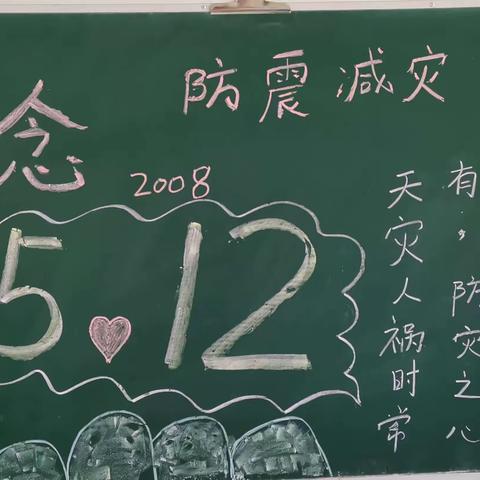 防震减灾
念
2008
5.12
天灾人祸时常
有,防灾之心